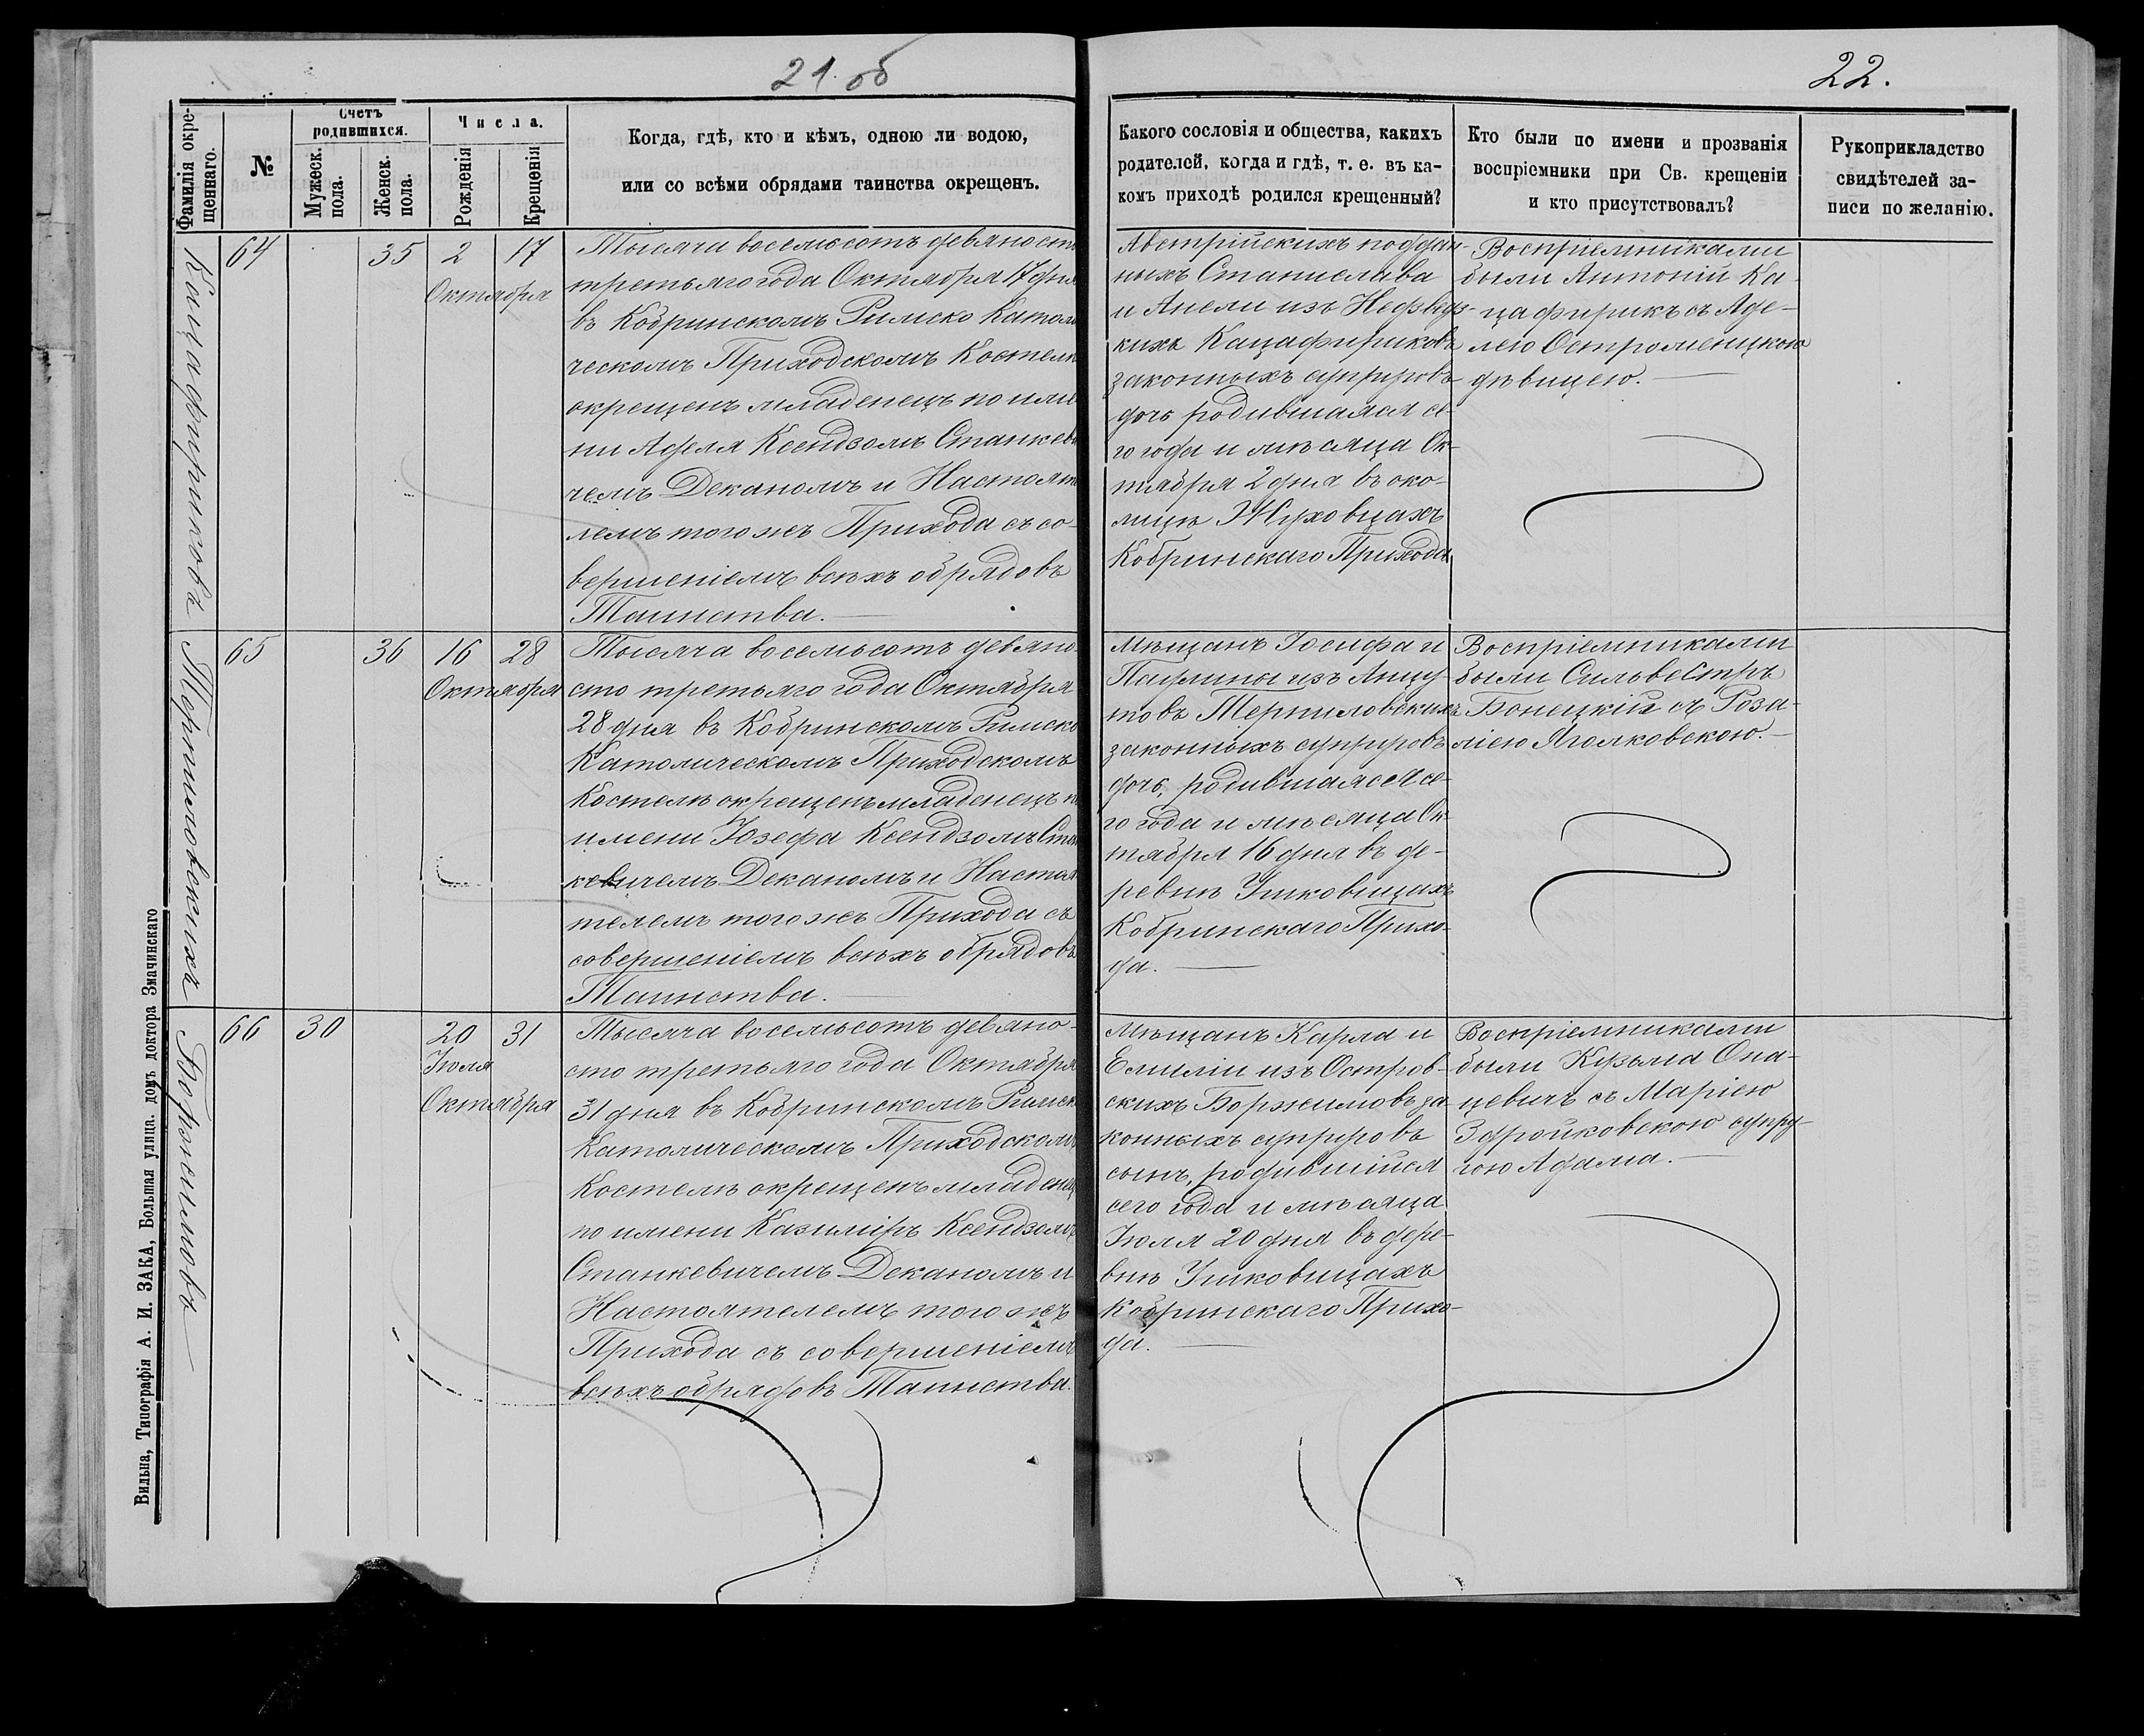 21. об
22.
Фамилія окре-
щеннаго.
№
Счетъ
родившихся.
Мужеск.
пола.
Женск.
пола.
Числа.
Рожденія
Крещенія
Когда, гдѣ, кто и кѣмъ, одною ли водою,
или со всѣми обрядами таинства окрещенъ.
Какого сословія и общества, какихъ
родителей, когда и гдѣ, т. е. въ ка-
комъ приходѣ родился крещенный?
Кто были по имени и прозванія
воспріемники при Св. крещеніи
и кто присутствовалъ?
Рукоприкладство
свидѣтелей за-
писи по желанію.
Кацафирикова
64
35
2
17
Октября
Тысяча восемьсотъ девяносто
третьяго года Октября 17 дня
въ Кобринскомъ Римско Католи
ческомъ Приходскомъ Костелѣ
окрещенъ младенецъ по име
ни Аделя Ксендзомъ Станкеви
чемъ Деканомъ и Настояте
лемъ того жъ Прихода съ со-
вершеніемъ всѣхъ обрядовъ
Таинства.
Австрійскихъ поддан-
ныхъ Станислава
и Анели изъ Недзвѣдз-
кихъ Кацафириковъ
законныхъ супруговъ
дочь родившаяся се-
го года и мѣсяца Ок-
тября 2 дня въ око-
лицѣ Жуховцахъ
Кобринскаго Прихода
Воспріемниками
были Антоній Ка-
цафирикъ съ Аде-
лею Остромецкою
дѣвицею.
Терпиловскихъ
65
36
16
28
Октября
Тысяча восемьсотъ девяно
сто третьяго года Октября
28 дня въ Кобринскомъ Римско
Католическомъ Приходскомъ
Костелѣ окрещенъ младенецъ по
имени Юзефа Ксендзомъ Стан
кевичемъ Деканомъ и Настоя
телемъ того жъ Прихода съ
совершеніемъ всѣхъ обрядовъ
Таинства.
Мѣщанъ Іосифа и
Паулины изъ Анцу-
товъ Терпиловскихъ
законныхъ супруговъ
дочь, родившаяся се-
го года и мѣсяца Ок
тября 16 дня въ де-
ревнѣ Ушковицахъ
Кобринскаго Прихо-
да.
Воспріемниками
были Сильвестръ
Бонецкій съ Роза-
ліею Яголковскою.
Боржимовъ
66
30
20
31
Іюля
Октября
Тысяча восемьсотъ девяно-
сто третьяго года Октября
31 дня въ Кобринскомъ Римско
Католическомъ Приходскомъ
Костелѣ окрещенъ младенецъ
по имени Казиміръ Ксендзомъ
Станкевичемъ Деканомъ и
Настоятелемъ того жъ
Прихода съ совершеніемъ
всѣхъ обрядовъ Таинства.
Мѣщанъ Карла и
Емиліи изъ Остров-
скихъ Боржимовъ за-
конныхъ супруговъ
сынъ, родившійся
сего года и мѣсяца
Іюля 20 дня въ дере-
внѣ Ушковицахъ
Кобринскаго Прихо-
да.
Воспріемниками
были Кузьма Опа-
цевичъ съ Маріею
Здройковскою супру-
гою Адама.
Вильна, Типографія А. И. ЗАКА, Большая улица. домъ доктора Змачинскаго